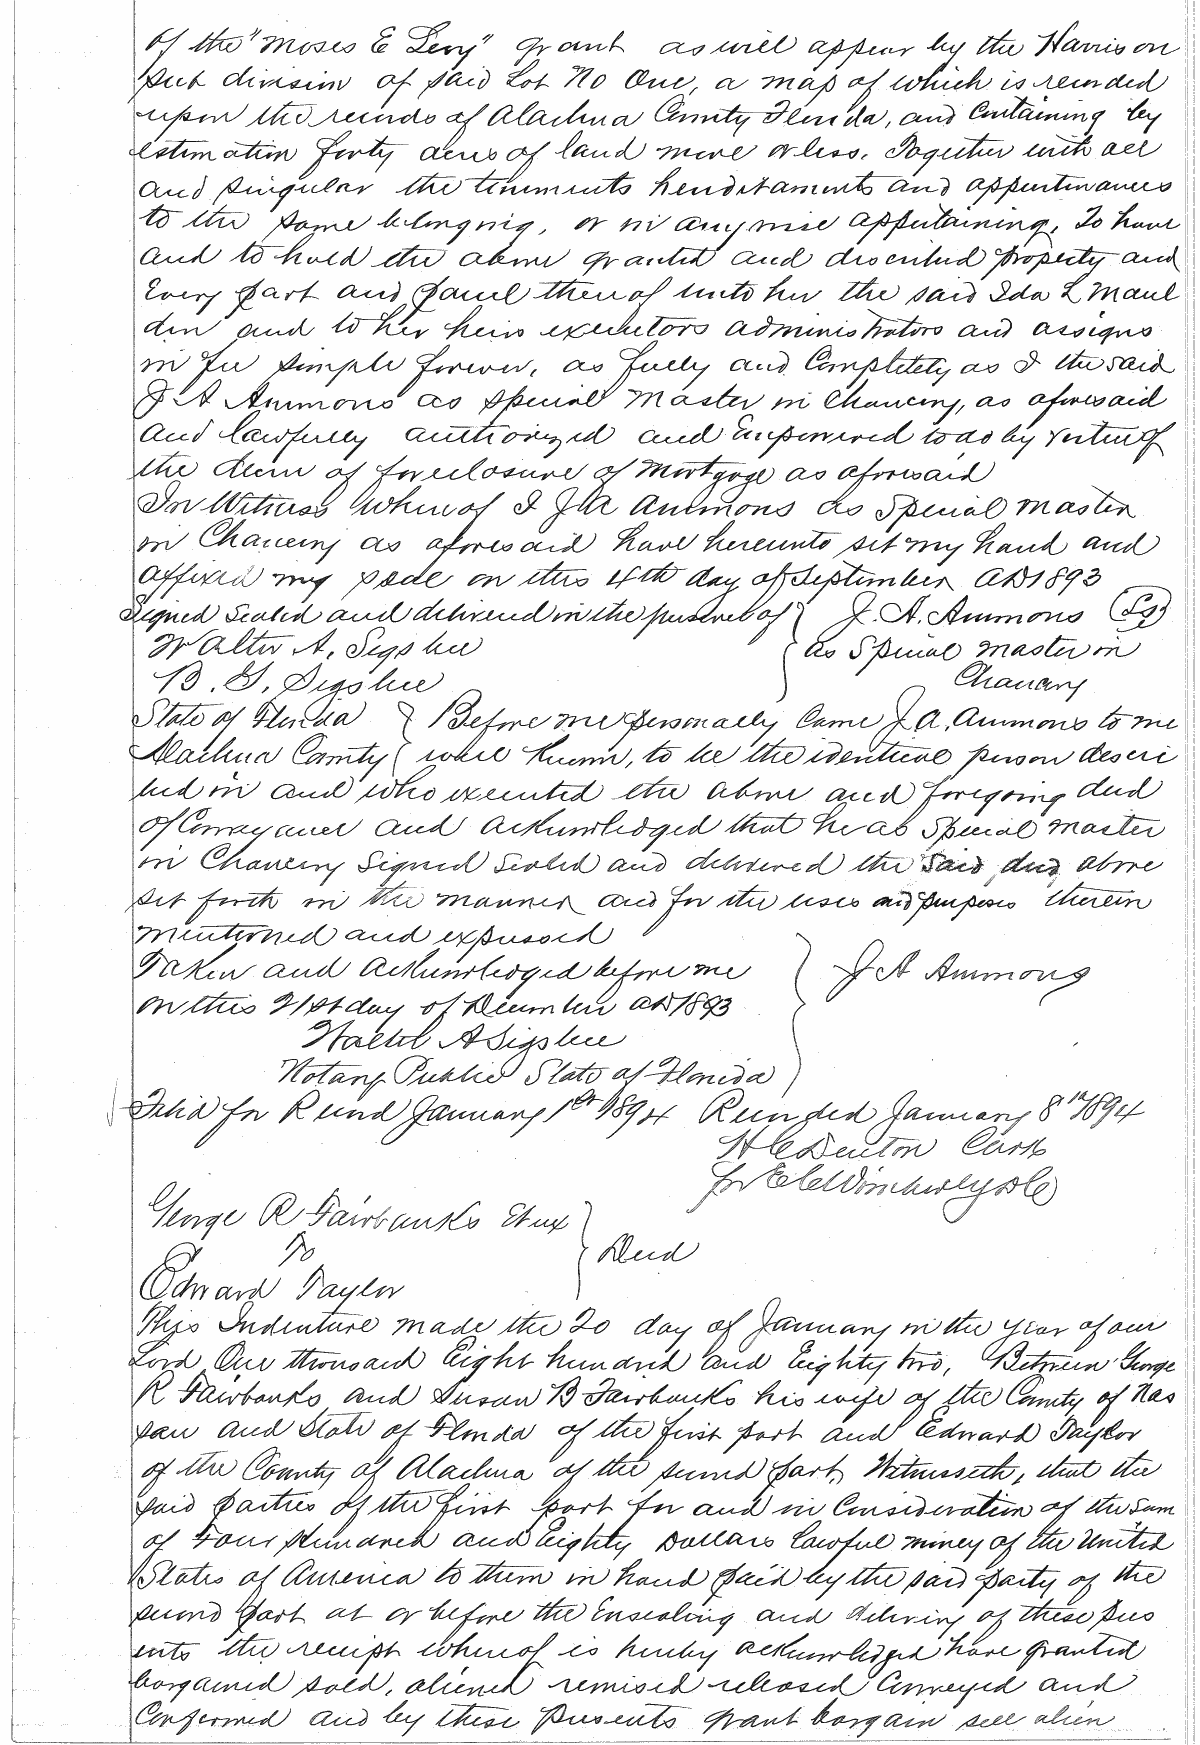 of the "Moses E Levy" grant as will appear by the Harrison
sub division of said Lot No One, a map of which is recorded
upon the records of Alachua County Florida, and containing by
estimation forty acres of land more or less. Together with all
and singular the tenements hereditaments and appurtinances
to the same belonging, or in anywise appertaining, To have
and to hold the above granted and described property and
every part and parcel thereof unto her the said Ida L Maul
din and to her heirs executors administrators and assigns
in fee simple forever, as fully and Completely as I the said
J A Ammons as special Master in Chancery, as aforesaid
and lawfully authorized and empowered to do by virtue of
the decree of foreclosure of Mortgage as aforesaid
In Witness whereof I J A Ammons as Special Master
in Chancery as aforesaid have hereunto set my hand and
affixed my seal on this 4th day of September AD 1893
Signed Sealed and delivered in the presence of } J. A. Ammons (LS)
Walter A. Sigsbee as Special Master in
B. G. Sigsbee Chancery
State of Florida } Before me personally Came J. A. Ammons to me
Alachua County } well known, to be the identical person descri
bed in and who executed the above and foregoing deed
of Conveyance and acknowledged that he as Special Master
in Chancery Signed Sealed and delivered the said deed above
set forth in the manner and for the uses and purposes therein
mentioned and expressed
Taken and acknowledged before me } J A Ammons
on this 21st day of December AD 1893
Walter A Sigsbee
Notary Public State of Florida
Filed for Record January 1st 1894 Recorded January 8th 1894
H C Denton Clerk
for E C Wimberly DC
George R Fairbanks Et ux
To } Deed
Edward Taylor
This Indenture made the 20 day of January in the year of our
Lord One thousand Eight hundred and Eighty two, Between George
R Fairbanks and Susan B Fairbanks his wife of the County of Nas
sau and State of Florida of the first part and Edward Taylor
of the County of Alachua of the second part, Witnesseth, that the
said parties of the first part for and in Consideration of the sum
of Four Hundred and Eighty Dollars lawful money of the United
States of America to them in hand paid by the said party of the
second part at or before the ensealing and delivery of these pres
ents the receipt whereof is hereby acknowledged have granted
bargained sold, aliened remised released Conveyed and
Confirmed and by these Presents grant bargain sell alien